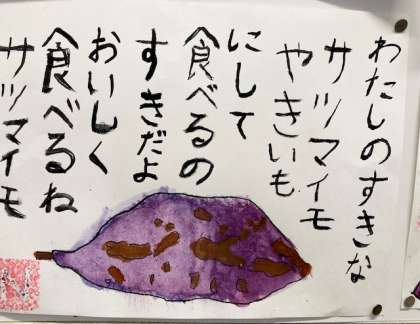 わたしのすきな
サツマイモ
やきいも
にして
食べるの
すきだよ
おいしく
食べるね
サツマイモ